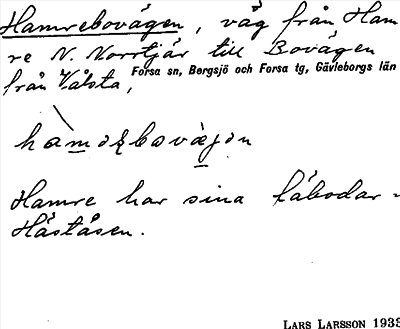 Hamrebovägen, väg från Ham
re N. Norrtjär till Bovägen
Forsa sn, Bergsjö och Forsa tg, Gävleborgs län
från Välsta,
Hamre har sina fäbodar -
Håståsen.
LARS LARSSON 1933